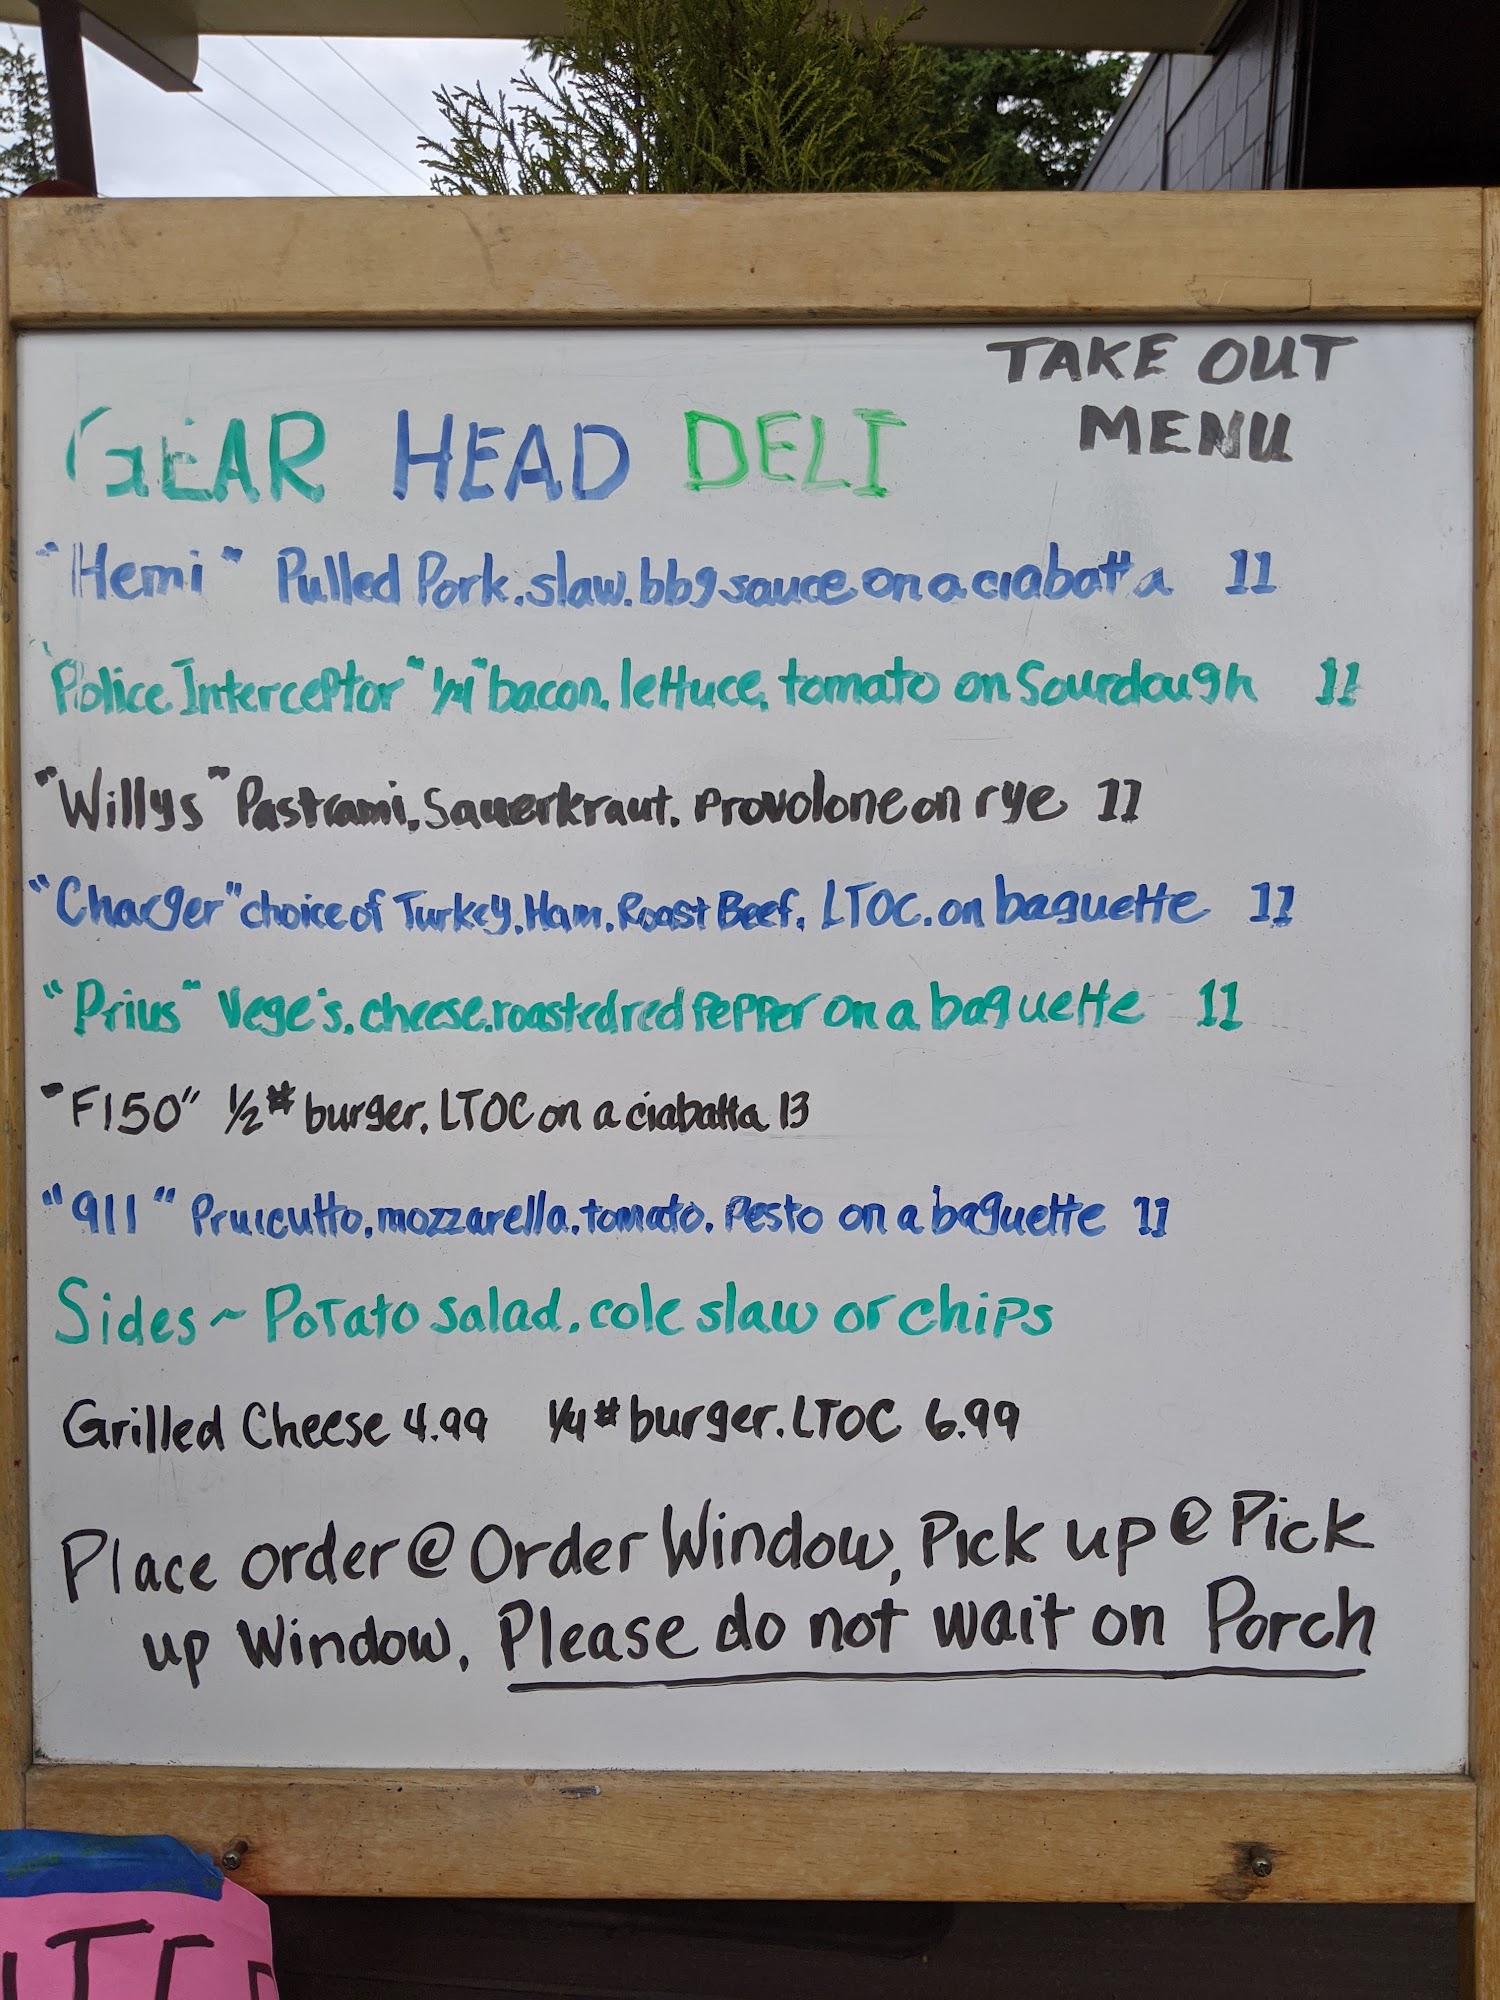 TAKE OUT
MENU
GEAR HEAD DELI
"Hemi" Pulled Pork, slaw, bbq sauce on a ciabatta 11
"Police Interceptor" 1/4" bacon, lettuce, tomato on Sourdough 11
"Willys" Pastrami, Sauerkraut, Provolone on rye 11
"Charger" choice of Turkey, Ham, Roast Beef, LTOC, on baguette 11
"Prius" Vege's, cheese, roasted red pepper on a baguette 11
"F150" 1/2# burger, LTOC on a ciabatta 13
"911" Pruicutto, mozzarella, tomato, Pesto on a baguette 11
Sides ~ Potato salad, cole slaw or chips
Grilled Cheese 4.99 1/4# burger, LTOC 6.99
Place order @ Order Window, Pick up @ Pick
up Window. Please do not wait on Porch